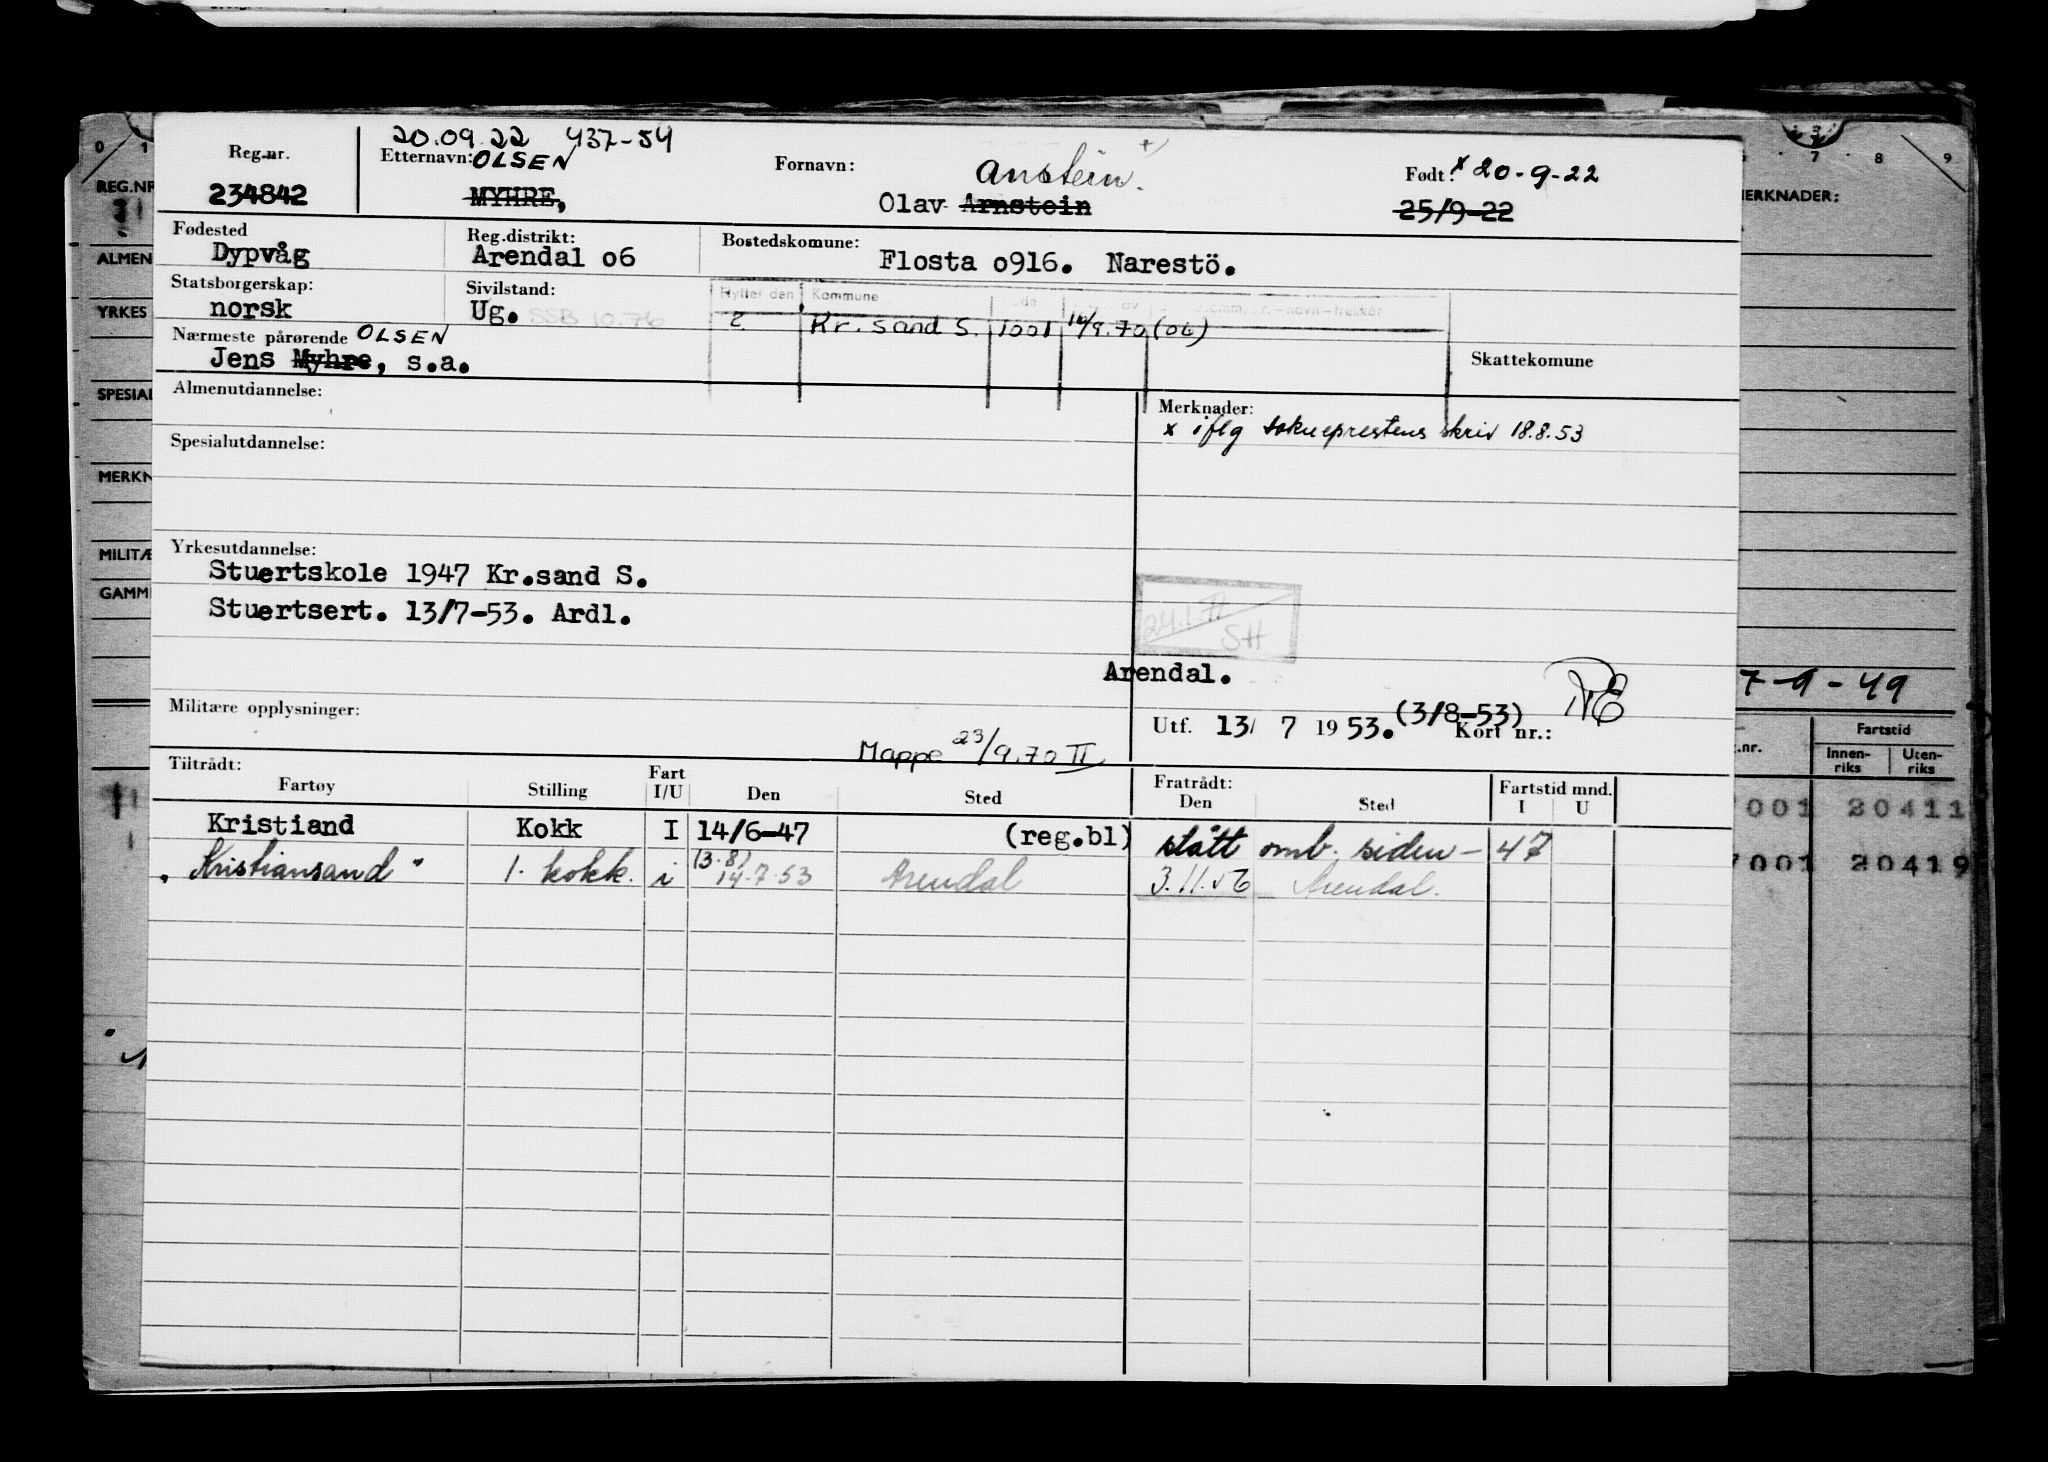 20.09.22 437-54
Reg.nr. Etternavn: OLSEN Fornavn: Anstein. Født: x 20-9-22
234842 MYHRE, Olav Arnstein 25/9-22
Fødested Reg.distrikt: Bostedskomune:
Dypvåg Arendal o6 Flosta o916. Narestö.
Statsborgerskap: Sivilstand: Flyttet den Kommune
norsk Ug. SSB 10.76 2 Kr. Sand S. 1001 14/9.70 (06)
Nærmeste pårørende OLSEN
Jens Myhre, s.a. Skattekomune
Almenutdannelse: Merknader:
x iflg sokneprestens skriv 18.8.53
Spesialutdannelse:
Yrkesutdannelse:
Stuertskole 1947 Kr.sand S.
Stuertsert. 13/7-53. Ardl.
24.1 II
SH
Arendal.
Militære opplysninger: Utf. 13/ 7 1953. (3/8-53) Kort nr.:
Mappe 23/9.70 II
Tiltrådt: Fratrådt:
Fartøy Stilling Fart I/U Den Sted Den Sted Fartstid mnd. I U
Kristiand Kokk I 14/6-47 (reg.bl) stått omb. siden - 47
"Kristiansand" 1. kokk. i (3.8) 14.7.53 Arendal 3.11.56 Arendal.
0 1
REG.NR
ALMEN
YRKES
SPESIAL
MERKN
MILITÆ
GAMM
7 8 9
MERKNADER:
7-9-49
.nr. Fartstid
Innen-riks Uten-riks
001 20411
7001 20419